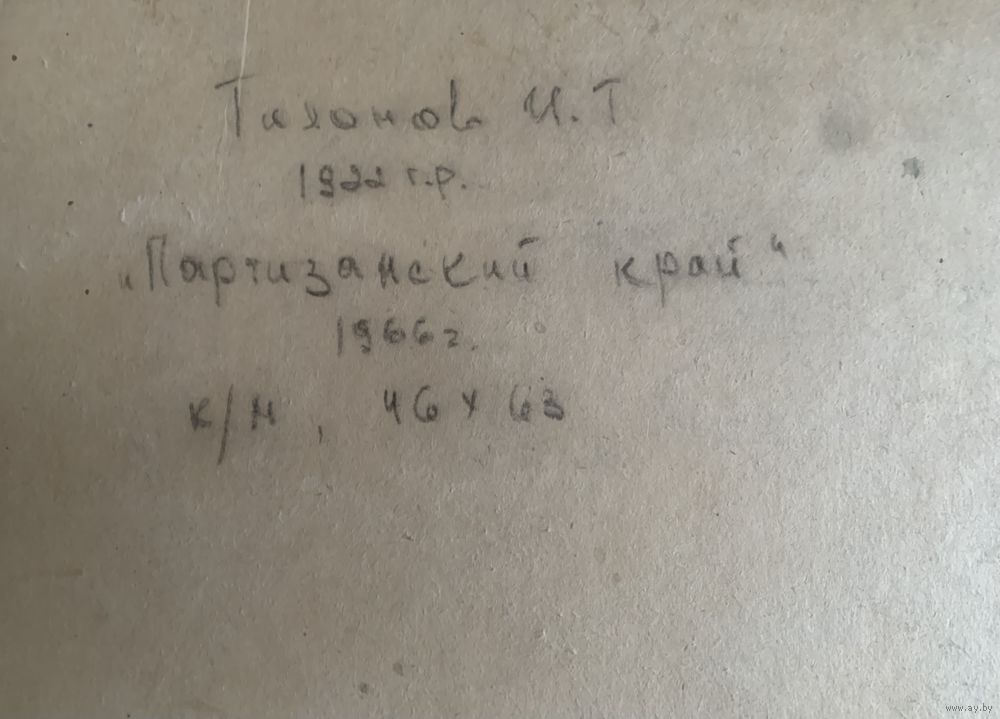 Тихонов И.Т
1922 г.р.
„Партизанский край“
1966г.
к/м, 46х63
www.ay.by